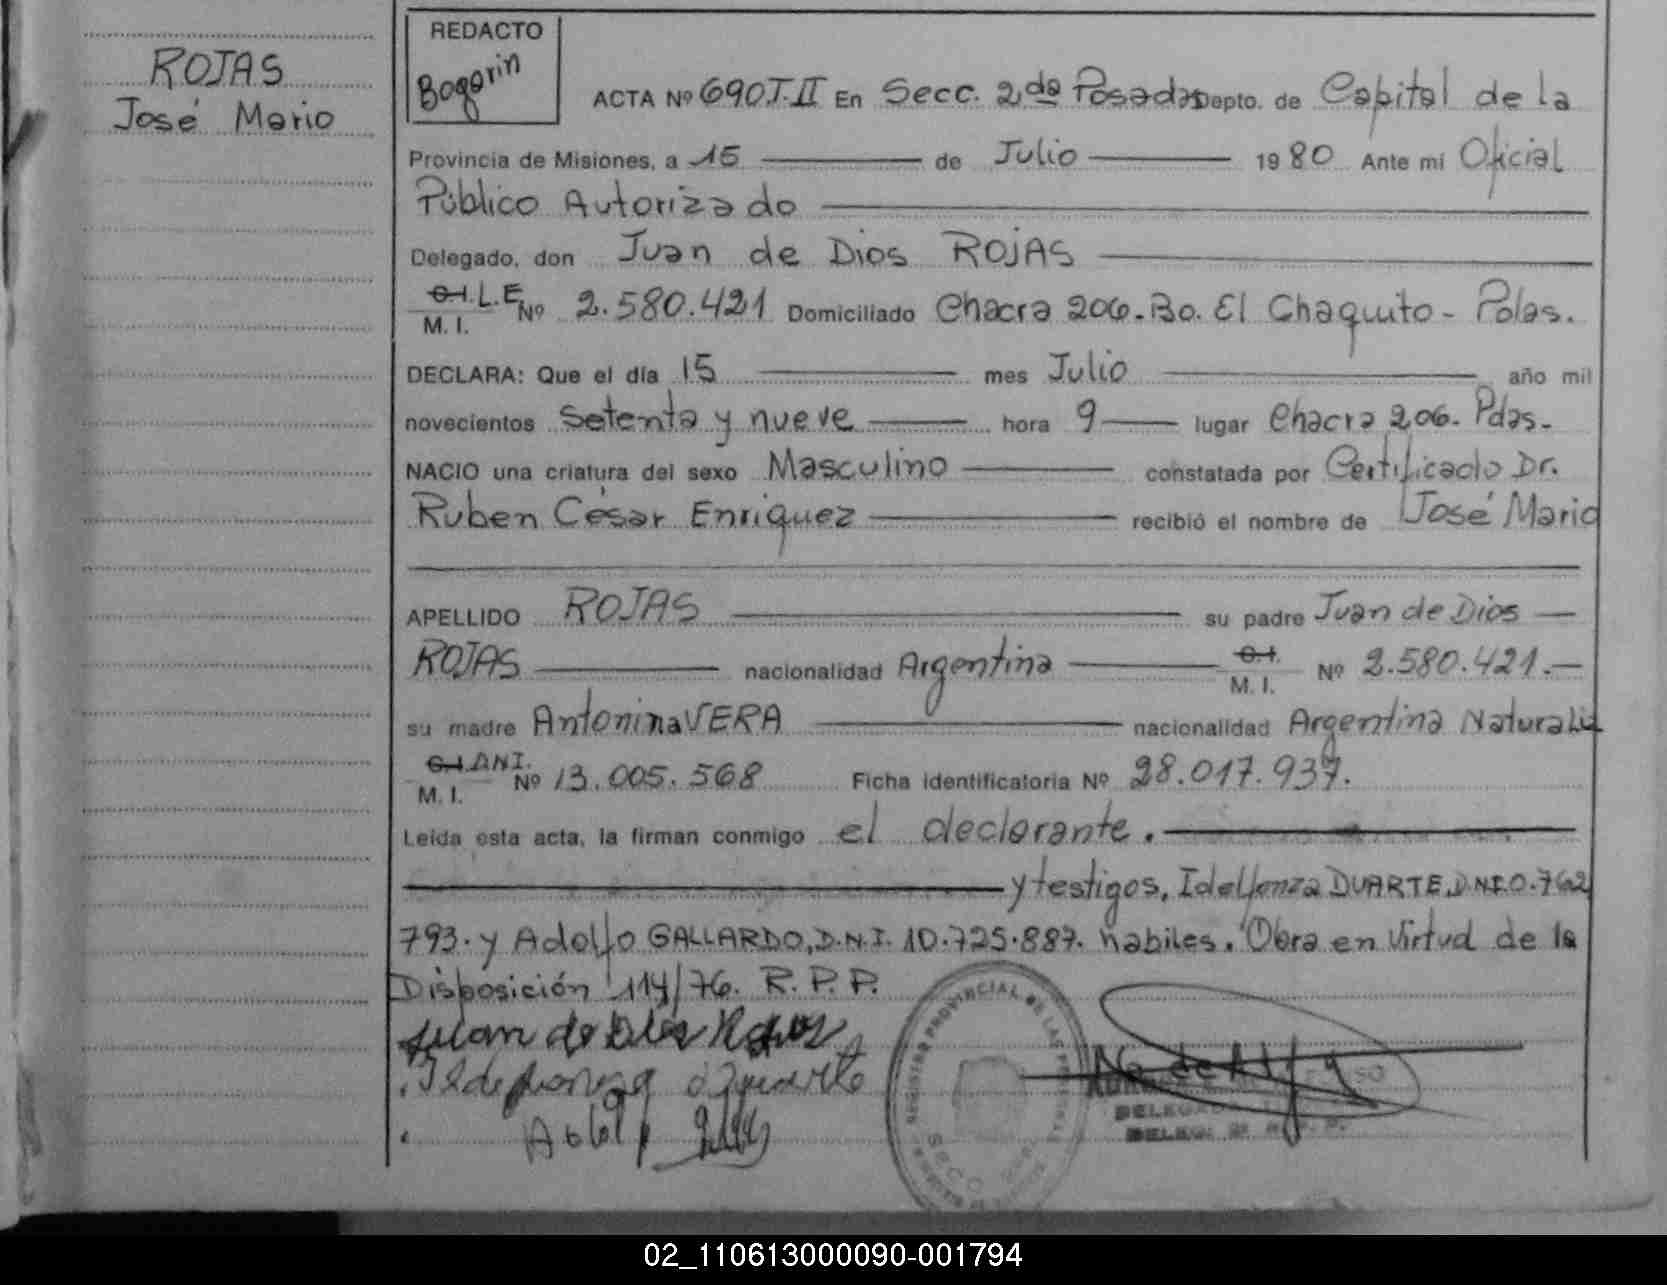 ROJAS
José Mario
REDACTO
Bogarin
ACTA Nº 690 T.II En Secc. 2da Posadas Depto. de Capital de la
Provincia de Misiones, a 15 de Julio 1980 Ante mi Oficial
Público Autorizado
Delegado, don Juan de Dios ROJAS
C.I. L.E. M. I. Nº 2.580.421 Domiciliado Chacra 206. Bo. El Chaquito - Pdas.
DECLARA: Que el día 15 mes Julio año mil
novecientos setenta y nueve hora 9 lugar Chacra 206. Pdas.
NACIO una criatura del sexo Masculino constatada por Certificado Dr.
Ruben César Enriquez recibió el nombre de José Mario
APELLIDO ROJAS su padre Juan de Dios
ROJAS nacionalidad Argentina C.I. M. I. Nº 2.580.421.
su madre Antonina VERA nacionalidad Argentina Naturaliz
C.I. DNI. M. I. Nº 13.005.568 Ficha identificatoria Nº 28.017.937.
Leída esta acta, la firman conmigo el declarante.
y testigos, Idelfonza DUARTE, D.N.I. 0.762
793. y Adolfo GALLARDO, D.N.I. 10.725.887. habiles. Obra en virtud de la
Disposición 114/76. R. P. P.
Juan de Dios Rojas
REGISTRO PROVINCIAL DE LAS PERSONAS
02_110613000090-001794